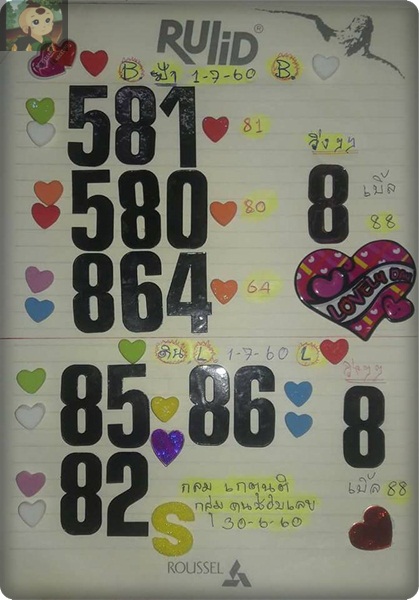 RUliD®
B ฟ้า 1-7-60 B
581 81
วิ่งๆๆ
580 80
8 เบิ้ล 88
864 64
LOVELY
ดิน L 1-7-60 L
วิ่งๆๆ
85 86 8
82 เบิ้ล 88
S
กลม เกตุนติ
กลุ่มคนชอบเลข
30-6-60
ROUSSEL